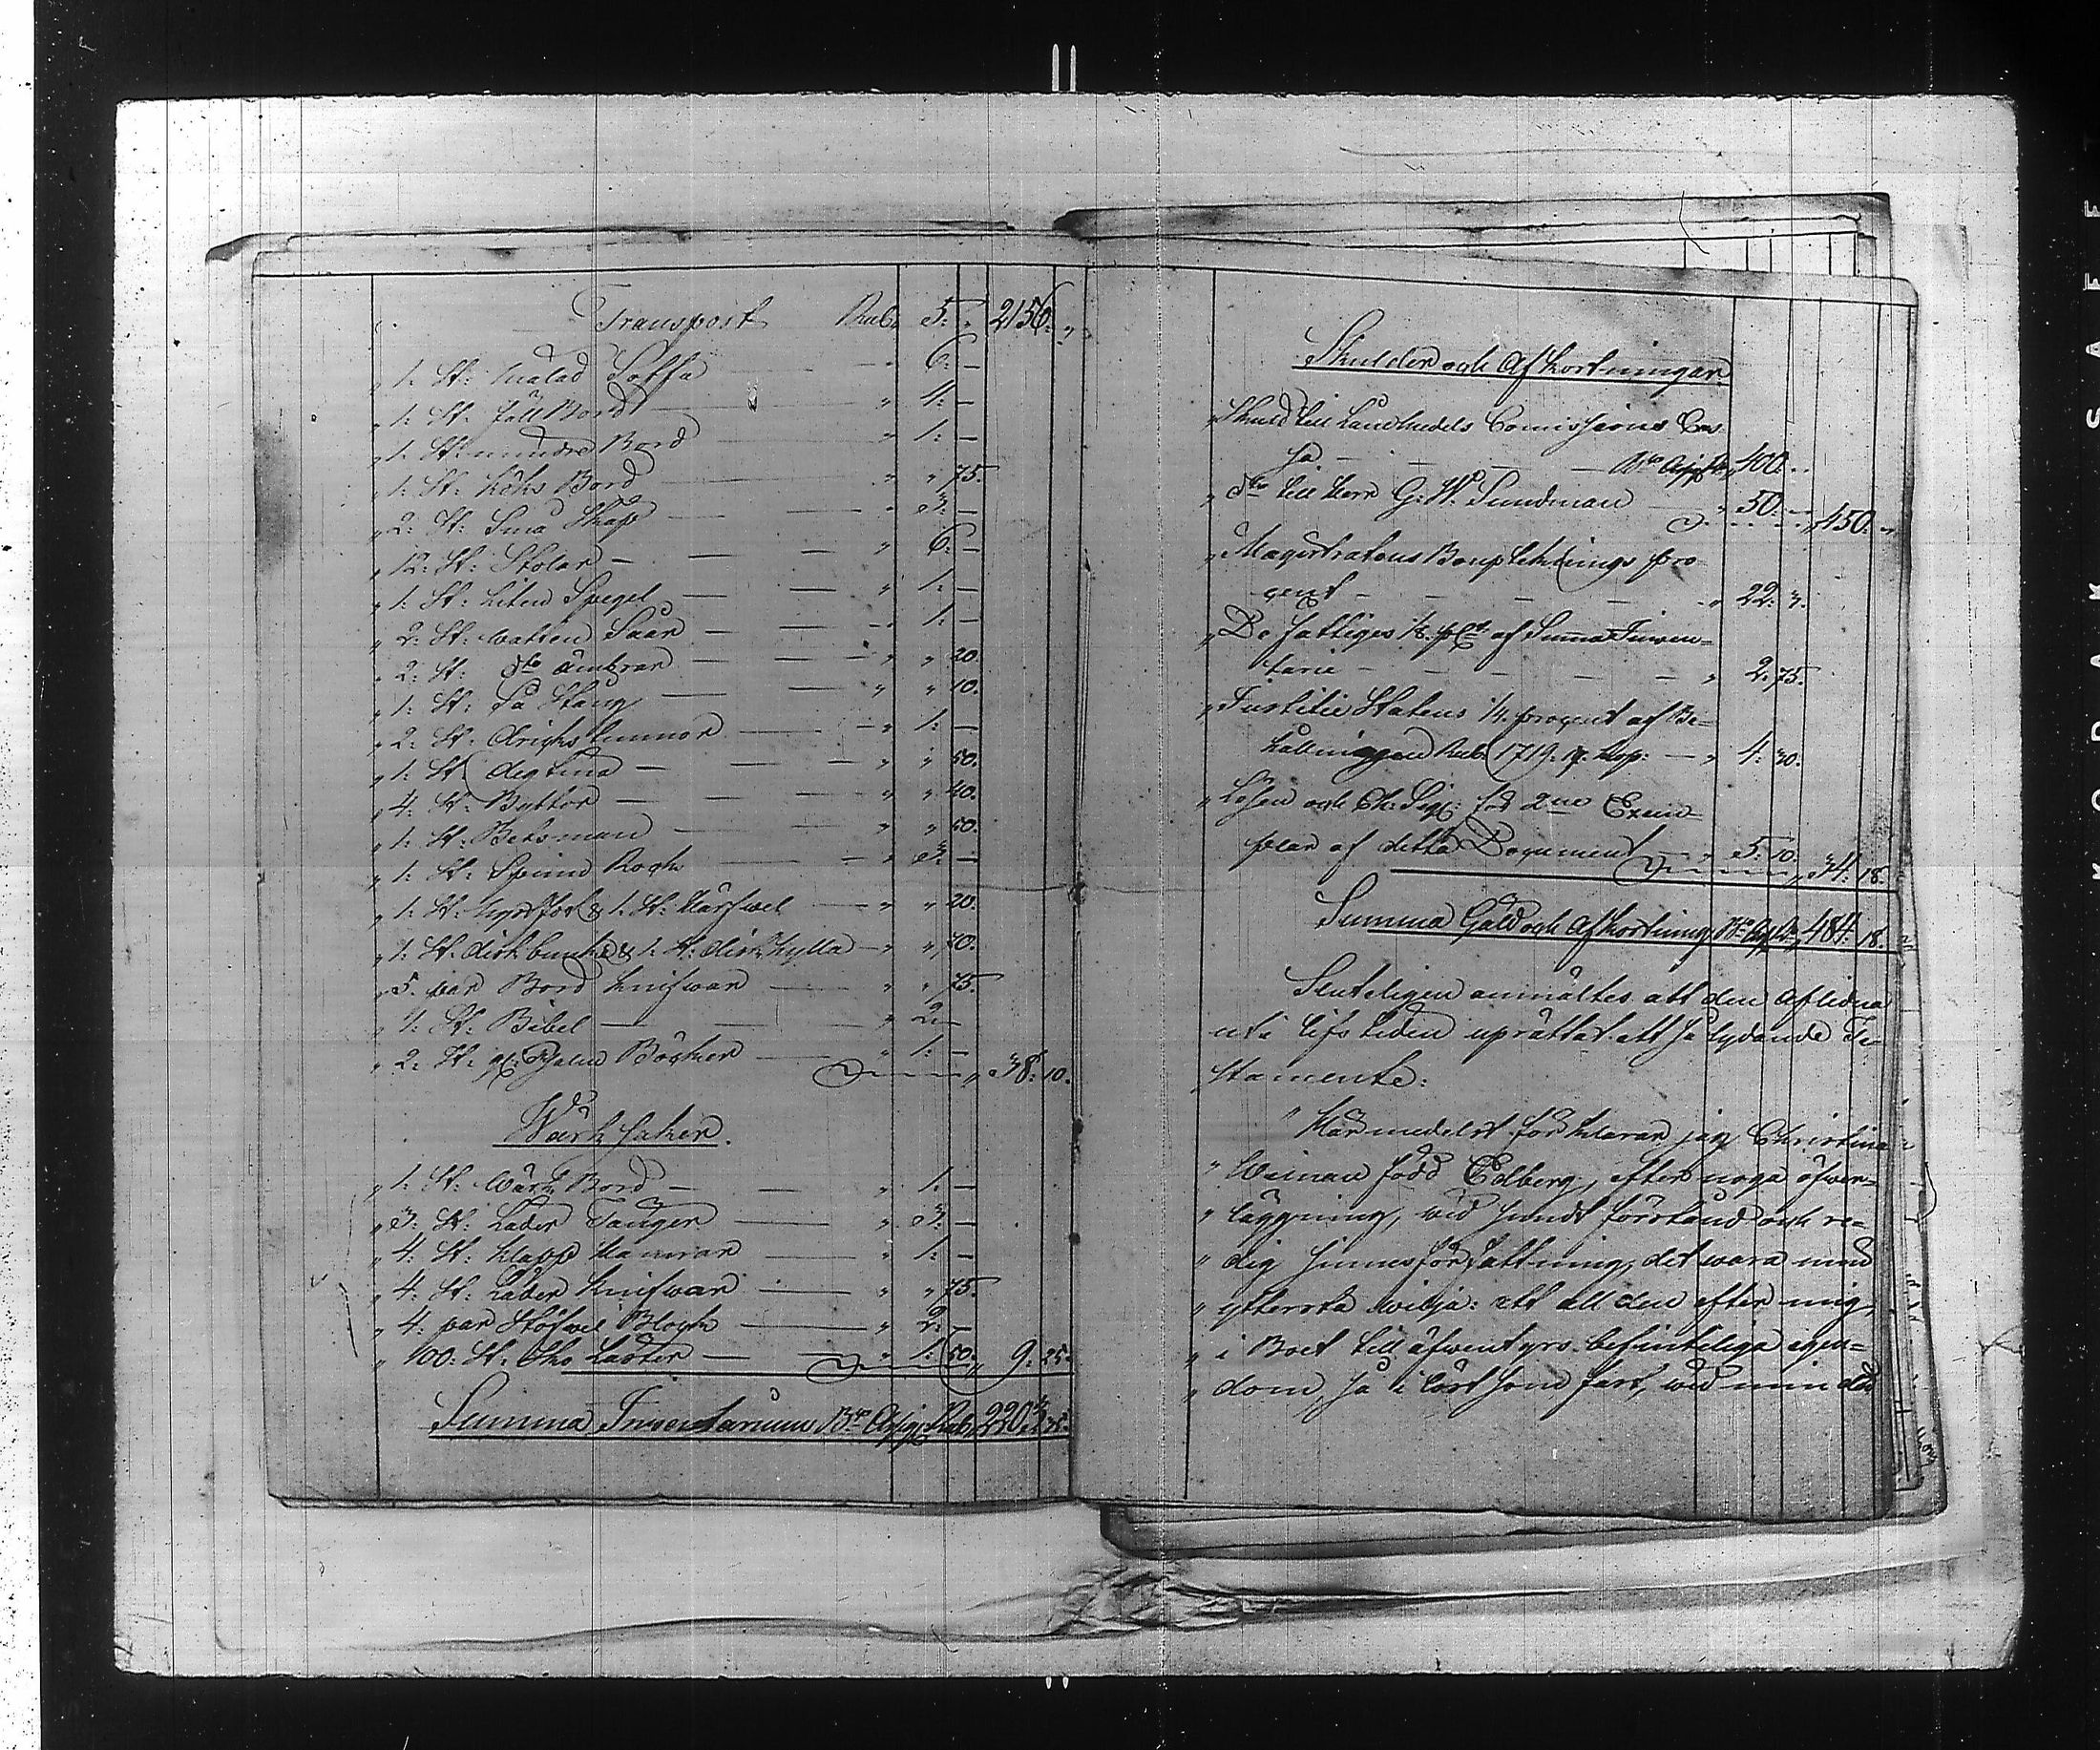 Transport Rub 5. „ 2156. „
„ 1. St: malad Soffa — „ 6. —
„ 1. St: fäll Bord — „ 4. —
„ 1. St: mindre Bord — „ 1. —
„ 1. St: Köks Bord — „ „ 75.
„ 2. St: Små Skåp — „ 3. —
„ 12. St: Stolar — „ 6. —
„ 1. St: liten Spegel — „ 1. —
„ 2. St: watten Såar — „ 1. —
„ 2. St: dto ämbrar — „ „ 20.
„ 1. St: Så Stång — „ „ 10.
„ 2. St: dricks tunnor — „ 1. —
„ 1. St: degtina — „ „ 50.
„ 4. St: Byttor — „ „ 40.
„ 1. St: Betsman — „ „ 50.
„ 1. St: Spinn Rock — „ 3. —
„ 1. St: & 1. St: Härfwel — „ „ 20.
„ 1. St: disk bunke & 1. St: disk hylla — „ „ 70.
„ 5. par Bord knifwar — „ „ 75.
„ 1. St: Bibel — „ 2. —
„ 2. St: Psalm Böcker — „ 1. —
„ 38. 10.
Wärk saker.
„ 1. St: Wärk Bord — „ 1. —
„ 3. St: Läder Tänger — „ 3. —
„ 4. St: klapp Hamrar — „ 1. —
„ 4. St: Läder knifwar — „ „ 75.
„ 4. par Stöfwel Block — „ 2. —
„ 100. St: Sko Läster — „ 1. 50. „ 9. 25.
Summa Inventarium Bco Assig. Rub. 2203. 35.
Skulder och Afkortningar
„ Skuld till Landtmedels Comissions Cas-
sa — Bco Assig. Rb 400. „
„ dto till Herr G: W: Sundman — „ 50. —
„ 450. „
„ Magistratens Boupteknings pro-
cent — „ 22. 3.
„ De fattiges 1/8. pCt af Summa Inwen-
tarie — „ 2. 75.
„ Justitie Statens 1/4. procent af Be-
hållningen Rub. 1719. 17. kop: — „ 4. 30.
„ Lösen och Ch: Sig: för 2ne Exem-
plar af detta Document — „ 5. 10.
„ 34. 18.
Summa Gäld och Afkortning Bco Ass. Rb 484. 18.
Sluteligen anmältes att den Aflidna
uti lifs tiden uprättat ett så lydande Te-
stamente:
„ Härmedelst förklarar jag Christina
„ Weman född Edberg, efter noga öfwer-
„ läggning, wid sundt förstånd och re-
„ dig sinnesförfattning, det wara min
„ yttersta wilja: att all den efter mig,
„ i Boet till äfwentyrs befinteliga egen-
„ dom, så i löst som fast, wid min död